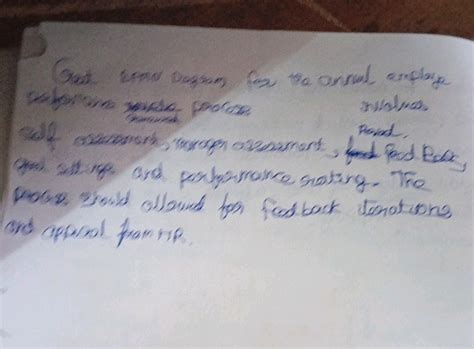 BPMN Diagram for the annual employe
performance process involves
self assessment, manager assessment, feed Back,
goal settings and performance rating. The
process should allowed for feedback iterations
and approval from HR.